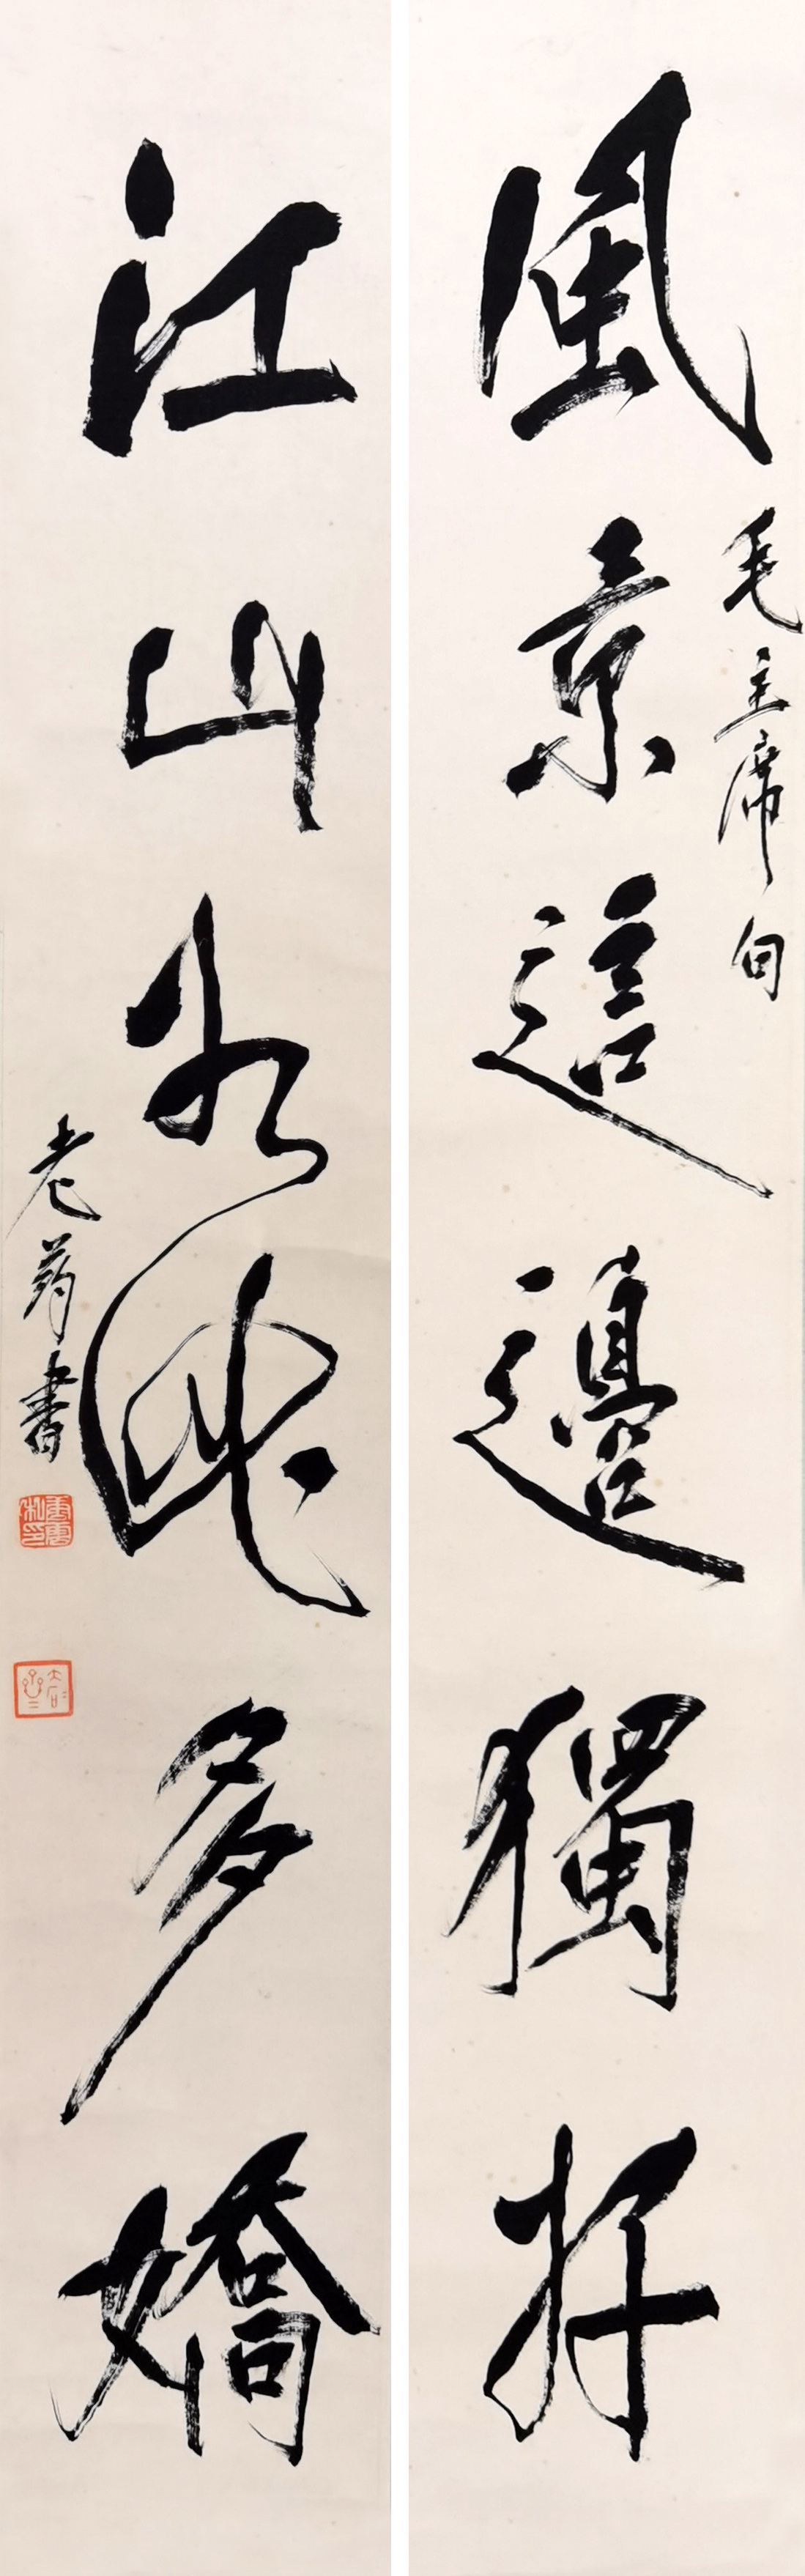 風景這邊獨好
毛主席句
江山如此多嬌
老葯書